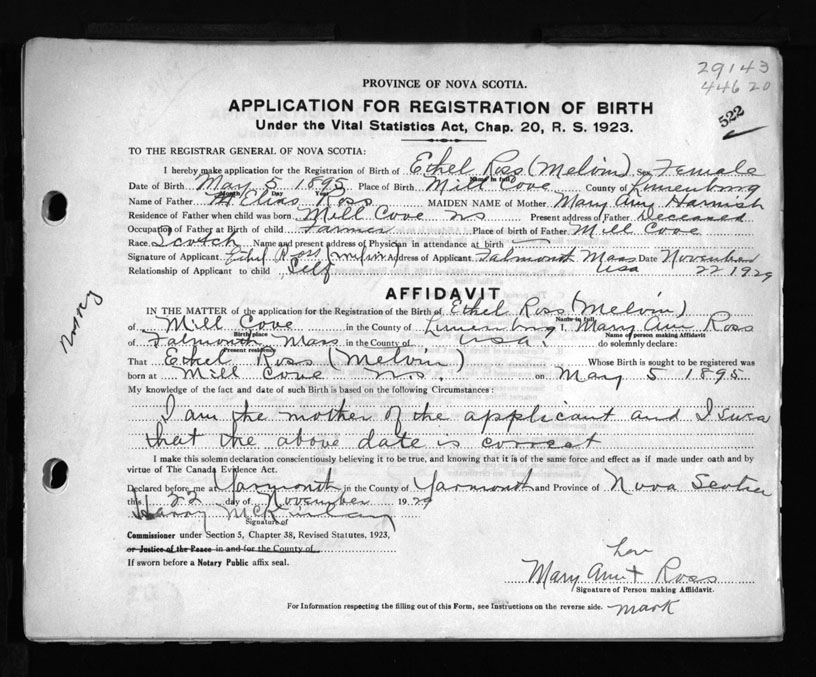 29143
44620
522
PROVINCE OF NOVA SCOTIA.
APPLICATION FOR REGISTRATION OF BIRTH
Under the Vital Statistics Act, Chap. 20, R. S. 1923.
TO THE REGISTRAR GENERAL OF NOVA SCOTIA:
I hereby make application for the Registration of Birth of Ethel Ross (Melvin) Sex Female
Name in full
Date of Birth May 5 1895 Place of Birth Mill Cove County of Lunenburg
Month Day Year
Name of Father Elias Ross MAIDEN NAME of Mother Mary Ann Harnish
Residence of Father when child was born Mill Cove NS Present address of Father Deceased
Occupation of Father at Birth of child Farmer Place of birth of Father Mill Cove
Race Scotch Name and present address of Physician in attendance at birth —
Signature of Applicant Ethel Ross (Melvin) Address of Applicant Falmouth Mass Date November
Relationship of Applicant to child Self USA 22 1929
AFFIDAVIT
IN THE MATTER of the application for the Registration of the Birth of Ethel Ross (Melvin)
Name in full
of Mill Cove in the County of Lunenburg I, Mary Ann Ross
Birth place Name of person making Affidavit
of Falmouth Mass in the County of USA. do solemnly declare:
Present residence
That Ethel Ross (Melvin) Whose Birth is sought to be registered was
born at Mill Cove N.S. on May 5 1895
My knowledge of the fact and date of such Birth is based on the following Circumstances:
I am the mother of the applicant and I
that the above date is correct
I make this solemn declaration conscientiously believing it to be true, and knowing that it is of the same force and effect as if made under oath and by
virtue of The Canada Evidence Act.
Declared before me at Yarmouth in the County of Yarmouth and Province of Nova Scotia
this 22 day of November 1929
Harry McKinlay
Signature of
Commissioner under Section 3, Chapter 38, Revised Statutes, 1923,
or Justice of the Peace in and for the County of
If sworn before a Notary Public affix seal.
her
Mary Ann + Ross
Signature of Person making Affidavit.
mark
For Information respecting the filling out of this Form, see Instructions on the reverse side.